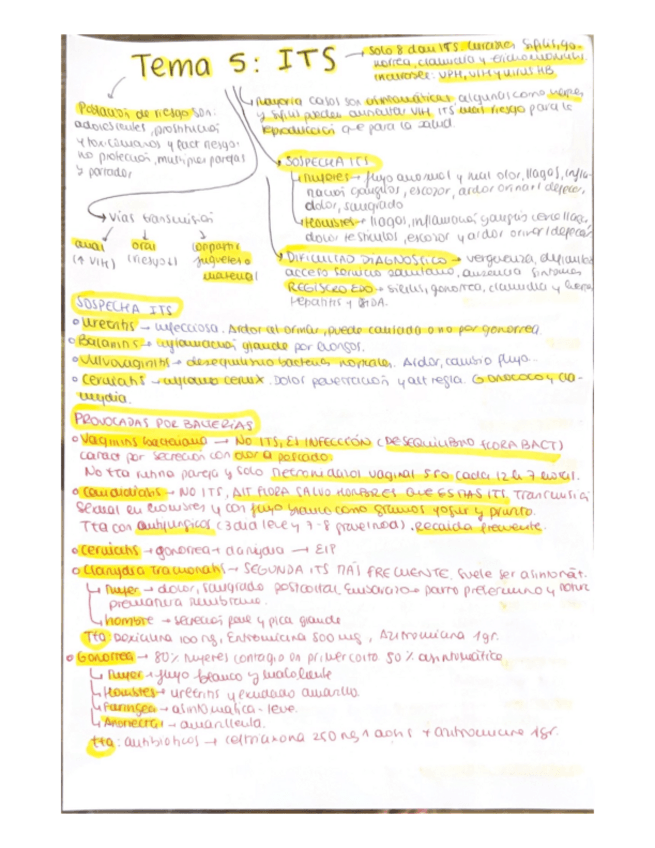 Tema 5: ITS → Solo 8 dan ITS. Curables: Sífilis, go-
norrea, clamidia y tricomoniasis.
Incurables: VPH, VIH y virus HB.
Población de riesgo son:
adolescentes, prostitución
y toxicómanos y fact riesgo:
no protección, multiples parejas
y portador
Mayoria casos son asintomáticas algunas como herpes
y sífilis pueden aumentar VIH. ITS mas riesgo para la
reproducción que para la salud.
SOSPECHA ITS
Mujeres → flujo anormal y mal olor, llagas, infla-
mación ganglios, escozor, ardor orinar/defecar,
dolor, sangrado
Hombres → llagas, inflamación ganglios cerca llaga,
dolor testiculos, escozor y ardor orinar/defecar
DIFICULTAD DIAGNÓSTICO → verguenza, dificultad
acceso servicio sanitario, ausencia sintomas
REGISTRO EDO → sífilis, gonorrea, clamidia y
Hepatitis y SIDA.
Vias transmisión
anal
(↑ VIH)
oral
(riesgo↓)
compartir
juguetes o
material
SOSPECHA ITS
• Uretritis → infecciosa. Ardor al orinar, puede causada o no por gonorrea
• Balanitis → inflamación glande por hongos.
• Vulvovaginitis → desequilibrio bacterias normales. Ardor, cambio flujo...
• Cervicitis → inflamo cervix. Dolor penetración y alt regla. Gonococo y cla-
mydia.
PROVOCADAS POR BACTERIAS
• Vaginitis bacteriana → NO ITS, ES INFECCIÓN (DESEQUILIBRIO FLORA BACT)
caract por secreción con olor a pescado.
No tta rutina pareja y solo Metronidazol vaginal 5 cada 12h 7
• Candidiasis → NO ITS, ALT FLORA SALVO HOMBRES QUE ES MAS ITS. Transmisión
Sexual en hombres y con flujo blanco como grumos yogur y prurito.
Tta con antifungicos (3 dia leve y 7-8). Recaida frecuente.
• Cervicitis → gonorrea + clamydia → EIP
• Clamydia Tracomatis → SEGUNDA ITS MÁS FRECUENTE. Suele ser asintomát.
Mujer → dolor, sangrado postcoital. Embarazo → parto pretermino y rotura
prematura membrana.
hombre → secreción pene y pica glande
Tta: Doxiciclina 100 mg, Eritromicina 500 mg, Azitromicina 1gr.
• Gonorrea → 80% mujeres contagio en primer coito 50% asintomático
Mujer → flujo blanco y maloliente
Hombres → uretritis y exudado amarillo
Faringea → asintomatica - leve.
Anorectal → amarillenta.
tta: antibioticos → ceftriaxona 250 mg 1 dosis + azitromicina 1gr.